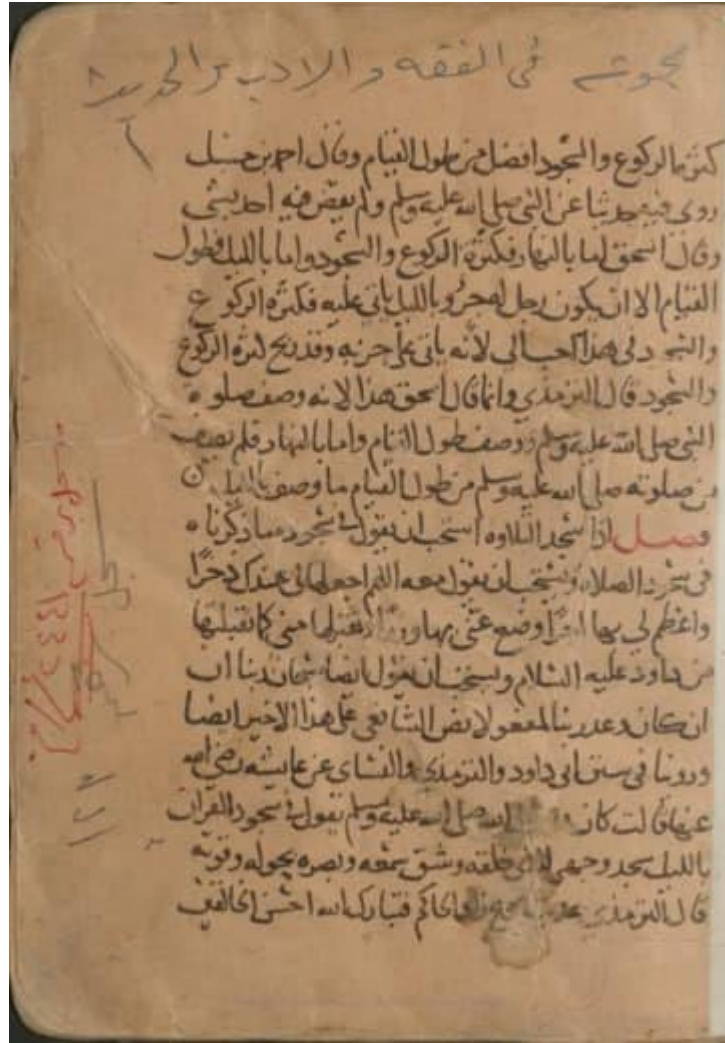 في الفقه والادب والحديث
كثرة الركوع والسجود افضل من طول القيام وقال احمد بن حنبل
روى فيه حديثا عن النبي صلى الله عليه وسلم ولم يقض فيه احمد بشي
وقال اسحق اما بالنهار فكثرة الركوع والسجود واما بالليل فطول
القيام الا ان يكون رجل له جزؤ بالليل ياتي عليه فكثرة الركوع
والسجود في هذا احب الي لانه ياتي على جزبه وقد ربح كثرة الركوع
والسجود قال الترمذي وانما قال اسحق هذا لانه وصف صلوة
النبي صلى الله عليه وسلم ووصف طول القيام واما بالنهار فلم يوصف
من صلوته صلى الله عليه وسلم من طول القيام ما وصف بالليل
فصل اذا سجد التلاوة استحب ان يقول في سجوده ما ذكرناه
في سجود الصلاة ويستحب ان يقول معه اللهم اجعلها لي عندك ذخرا
واعظم لي بها اجرا وضع عني بها وزرا وتقبلها مني كما تقبلتها
من داود عليه السلام ويستحب ان يقول ايضا سبحان ربنا ان
ان كان وعد ربنا لمفعولا نص الشافعي على هذا الاخير ايضا
وروينا في سنن ابي داود والترمذي والنسائي عن عايشة رضي الله
عنها قالت كان الله صلى الله عليه وسلم يقول في سجود القران
بالليل سجد وجهي للذي خلقه وشق سمعه وبصره بحوله وقوته
قال الترمذي صحيح زاد الحاكم فتبارك الله احسن الخالقين